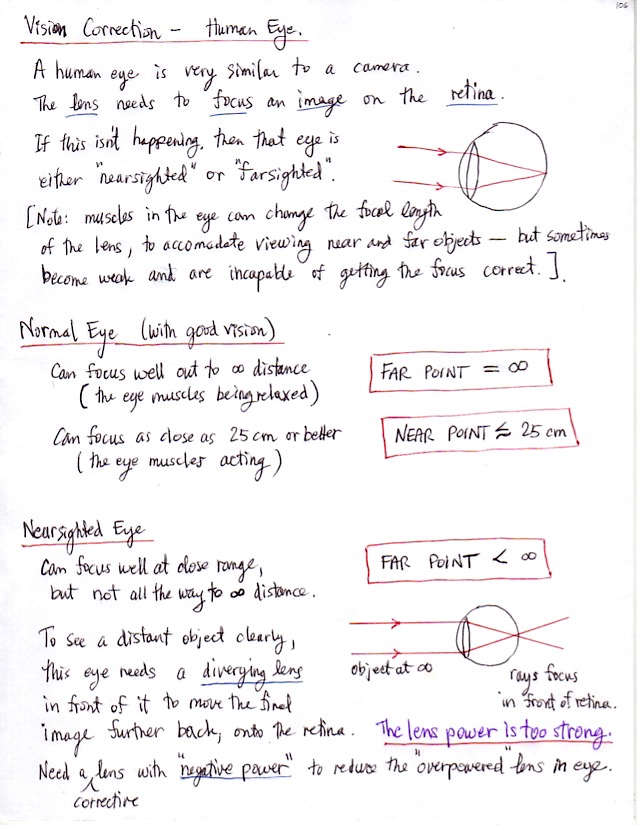 106
Vision Correction – Human Eye.
A human eye is very similar to a camera.
The lens needs to focus an image on the retina.
If this isn't happening, then that eye is
either "nearsighted" or "farsighted".
[Note: muscles in the eye can change the focal length
of the lens, to accomodate viewing near and far objects – but sometimes
become weak and are incapable of getting the focus correct.].
Normal Eye (with good vision)
Can focus well out to ∞ distance
(the eye muscles being relaxed)
FAR POINT = ∞
Can focus as close as 25 cm or better
(the eye muscles acting)
NEAR POINT ≲ 25 cm
Nearsighted Eye
Can focus well at close range,
but not all the way to ∞ distance.
FAR POINT < ∞
To see a distant object clearly,
this eye needs a diverging lens
in front of it to move the final
image further back, onto the retina.
object at ∞
rays focus
in front of retina.
The lens power is too strong.
Need a corrective lens with "negative power" to reduce the "overpowered" lens in eye.